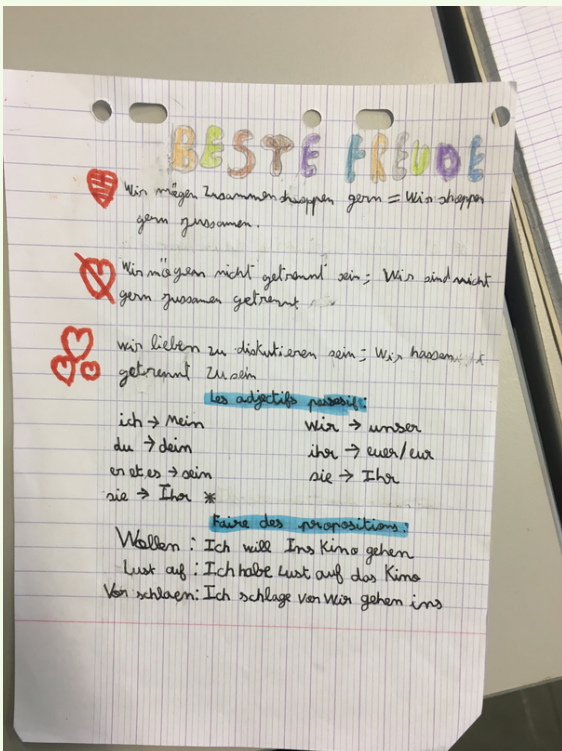 BESTE FREUDE
Wir mögen Zusammen shoppen gern = Wir shoppen
gern zussamen.
Wir mögen nicht getrennt sein; Wir sind nicht
gern zussamen getrennt
wir lieben zu diskutieren sein; Wir hassen
getrennt zu sein
Les adjectifs possesif:
ich → Mein
wir → unser
du → dein
ihr → euer/eur
er et es → sein
sie → Ihr
sie → Ihr *
Faire des propositions:
Wollen : Ich will Ins Kino gehen
Lust auf : Ich habe Lust auf das Kino
Vor schlaen: Ich schlage vor Wir gehen ins